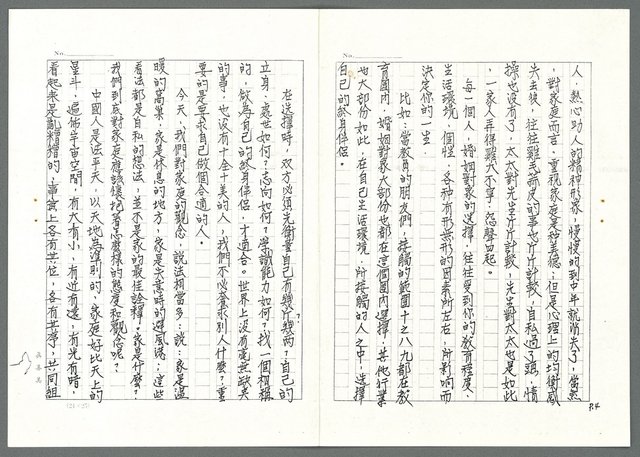 No.
P.4
人，熱心助人的精神形象，慢慢的到中年就消失了，當然
，對家庭而言，重視家庭是種美德；但是心理上的均衡感
失去後，往往雞毛蒜皮的事也斤斤計較，自私過了頭，情
操也沒有了，太太對先生斤斤計較，先生對太太也是如此
，一家人弄得雞犬不寧，怨聲四起。
每一個人，婚姻對家的選擇，往往受到你的教育程度、
生活環境、個性、各種有形無形的因素所左右，所影响而
決定你的一生．
比如：當教員的朋友們，接觸的範圍十之八九都在教
育圈內，婚姻對象大部份也都在這個圈內選擇，其他行業
也大部份如此，在自己生活環境，所接觸的人之中，選擇
自己的終身伴侶。
No.
在選擇時，双方必須先衡量自己有幾斤幾兩？自己的
立身、處世如何？志向如何？學識能力如何？找一個相稱
的，做為自己的終身伴侶，才適合。世界上沒有毫無缺失
的事，也沒有十全十美的人，我們不必奢求別人什麼？重
要的是要求自己做個合適的人。
今天，我們對家庭的觀念，說法相當多：說：家是溫
暖的窩巢，家是休息的地方，家是失意時的避風港；這些
看法都是自私的想法，並不是家的最佳詮釋。家是什麼？
我們到底對家庭應該懷抱着怎麼樣的態度和觀念呢？
中國人是法乎天，以天地為準則的，家庭好比天上的
星斗，遍佈宇宙空間，有大有小，有近有遠，有光有暗，
看起來是亂糟糟的，事實上各有其位，各有其序，共同組